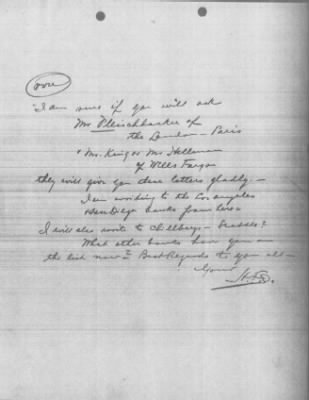 (over)
I am sure if you will ask
Mr. Fleischhacker of
the London - Paris
& Mr. King or Mr. Hellman
of Wells Fargo
they will give you these letters gladly -
I am writing to the Los Angeles
& San Diego banks from here.
I will also write to Chilberg -
What other banks have you on
the list now? Best Regards to you all -
Yours